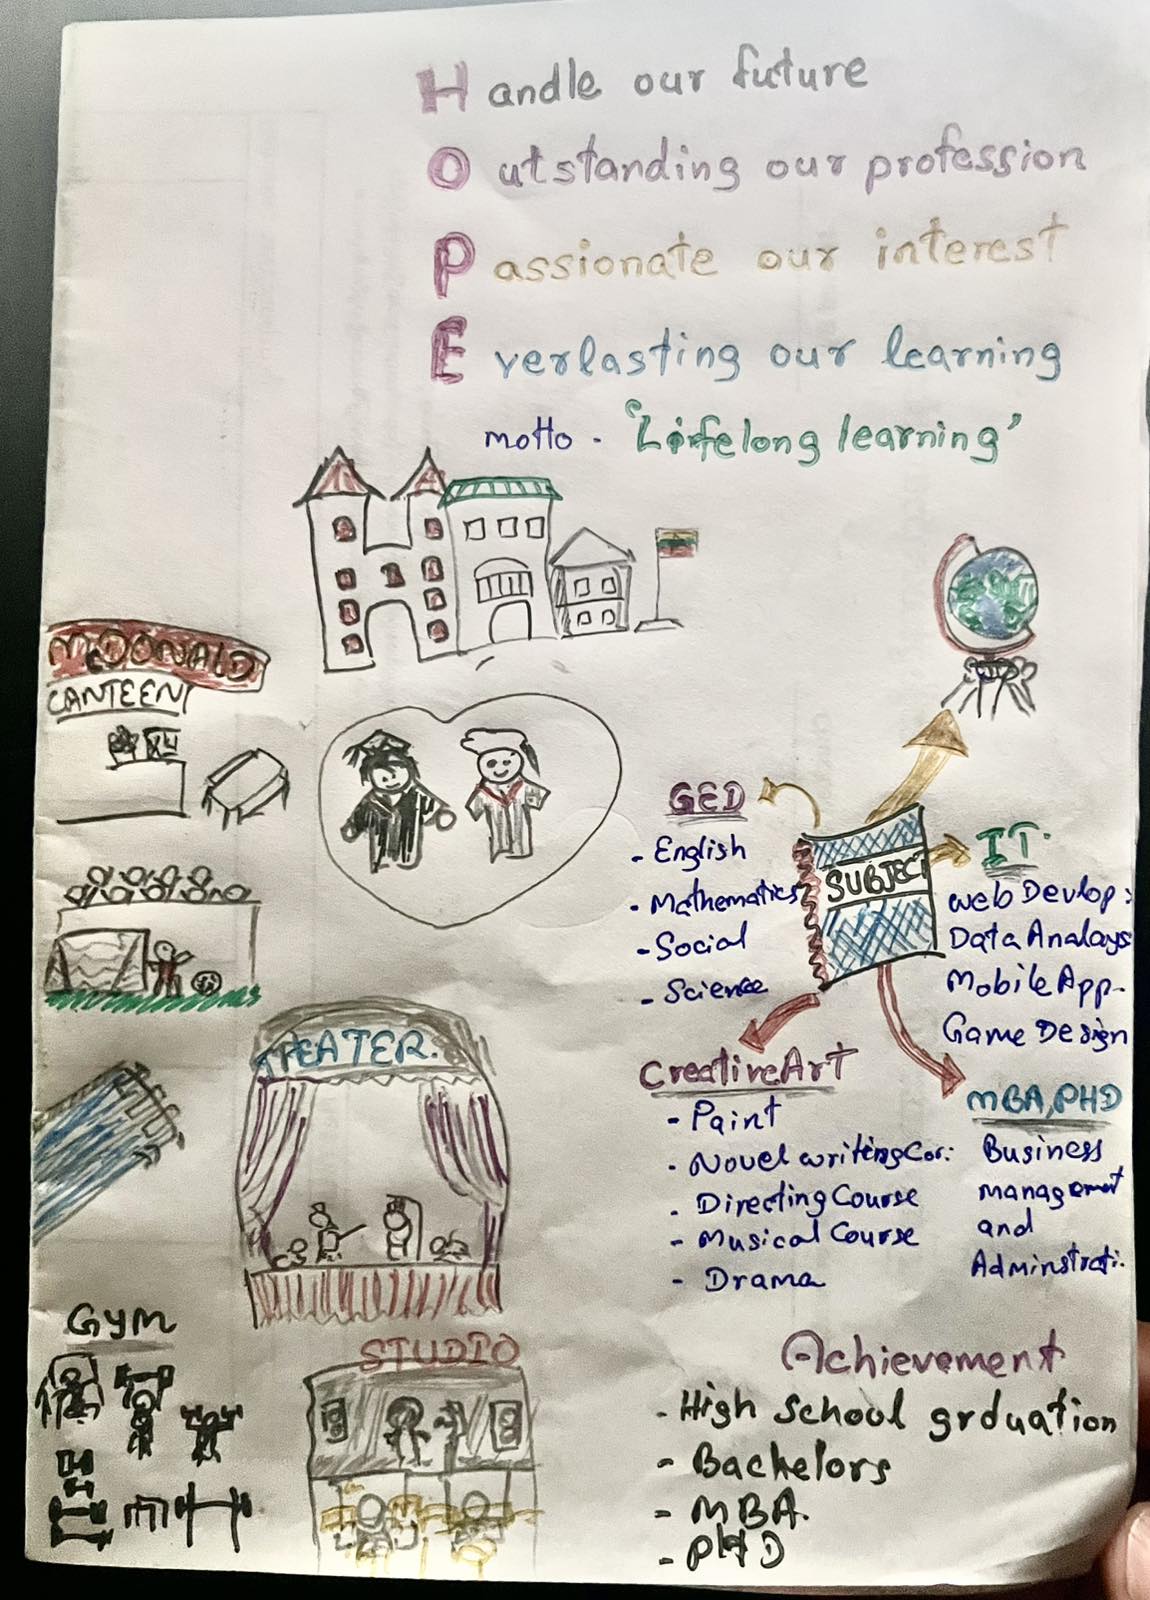 Handle our future
Outstanding our profession
Passionate our interest
Everlasting our learning
motto - "Lifelong learning"
McDONALD
CANTEEN
GED
- English
- Mathematics
- Social
- Science
SUBJECT
IT
Web Devlop:
Data Analays
Mobile App-
Game Design
Creative Art
- Paint
- Novel writing Cor:
- Directing Course
- Musical Course
- Drama
MBA, PHD
Business
management
and
Adminstrati.
TEATER.
GYM
STUDIO
Achievement
- High School grduation
- Bachelors
- MBA.
- PHD